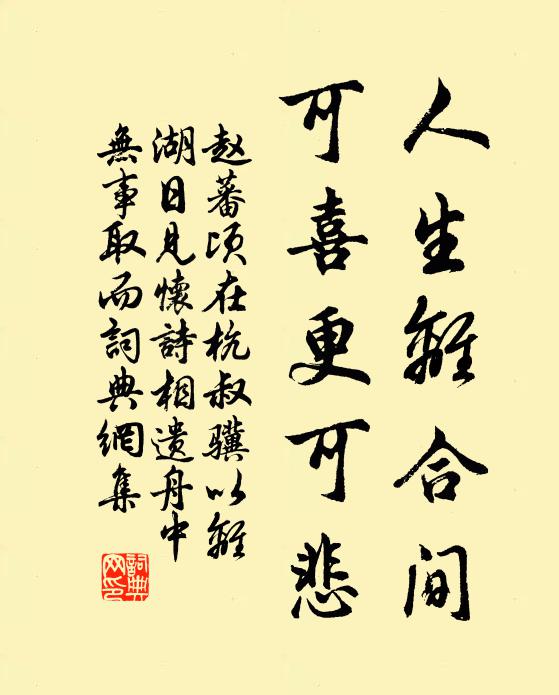 人生離合间
可喜更可悲
赵蕃顷在杭叔骥以離
湖日見懷詩相遺舟中
無事取而詞典網集
詞典
网印